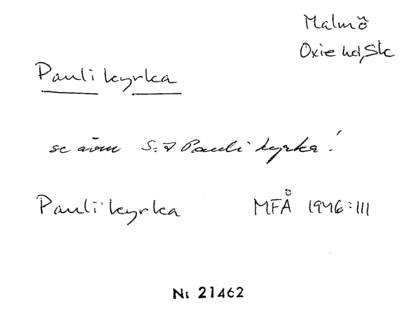 Malmö
Oxie hd, Sk
Pauli kyrka
se även S:t Pauli kyrka!
Pauli kyrka MFÅ 1946:III
Nr 21462